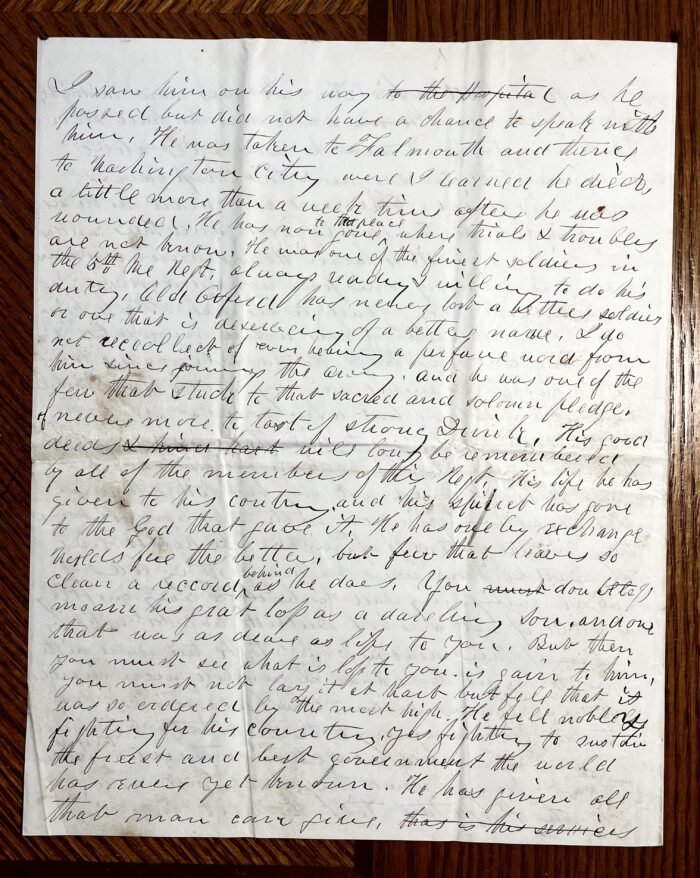 I saw him on his way to the Hospital as he
passed but did not have a chance to speak with
him. He was taken to Falmouth and thence
to Washington City were I learned he died,
a little more then a week time after he was
wounded. He has now gone to that place where trials & troubles
are not know. He was one of the finest soldiers in
the 5th Me Regt. always ready & willing to do his
duty. Old Oxford has never lost a better soldier
or one that is deserveing of a better name. I do
not recollect of ever hearing a perfane word from
him since joining the army. and he was one of the
few that stuck to that sacred and solomn pledge.
of never more to tast of strong Drink. His good
deeds & kind hart will long be remembered
by all of the members of this Regt. His life he has
given to his contry. and his spirit has gone
to the God that gave it. He has only exchange
worlds for the better, but few that leaves so
clean a reccord behind as he does. You must doubtless
moarn his grat loss as a darling son. and one
that was as deare as life to you. But then
you must see what is loss to you is gain to him.
you must not lay it at hart but fell that it
was so ordered by the most high. He fell nobley
fighting for his country, yes fighting to sustain
the finest and best government the world
has ever yet known. He has given all
that man can give. thas is his services